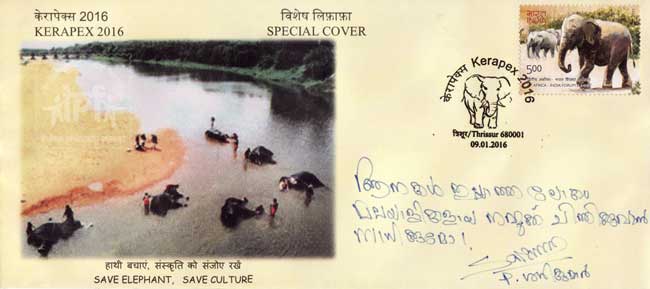 केरापेक्स 2016
KERAPEX 2016
विशेष लिफ़ाफ़ा
SPECIAL COVER
भारत
INDIA
5.00
AFRICA - INDIA FORUM
केरापेक्स Kerapex 2016
त्रिशूर/Thrissur 680001
09.01.2016
ആനകൾ ഇല്ലാത്ത ലോകം
മലയാളികളായ നമുക്ക് ചിന്തിക്കുവാൻ
സാധിക്കുമോ!
हाथी बचाएं, संस्कृति को संजोए रखें
SAVE ELEPHANT, SAVE CULTURE